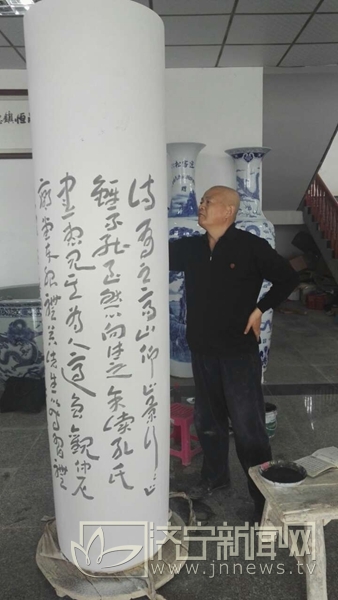 诗有之高山仰止景行〻止
雖不能至然心向往之余读孔氏
書想见其为人适鲁觀仲尼
廟堂車服禮器諸生以時習禮
济宁新闻网
www.jnnews.tv